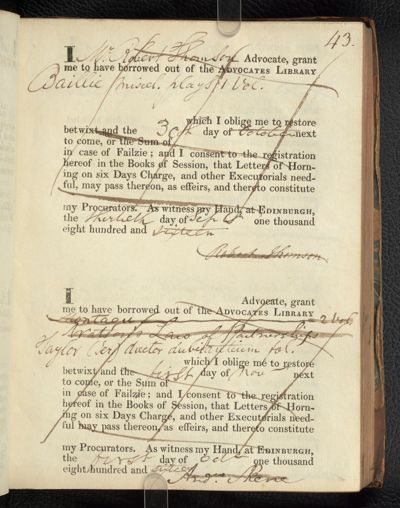 43.
I Mr Robert Thomson Advocate, grant
me to have borrowed out of the ADVOCATES LIBRARY
Baillie miscel. plays 1 Vol.
which I oblige me to restore
betwixt and the 30th day of October next
to come, or the Sum of
in case of Failzie; and I consent to the registration
hereof in the Books of Session, that Letters of Horn-
ing on six Days Charge, and other Executorials need-
ful, may pass thereon, as effeirs, and thereto constitute
my Procurators. As witness my Hand, at EDINBURGH,
the thirtieth day of Sept one thousand
eight hundred and sixteen
Robert Thomson
I Advocate, grant
me to have borrowed out of the ADVOCATES LIBRARY
Montagu 2 Vol.
Watson's Laws of Partnerships
Taylor ductor dubitantium vol.
which I oblige me to restore
betwixt and the first day of Nov next
to come, or the Sum of
in case of Failzie; and I consent to the registration
hereof in the Books of Session, that Letters of Horn-
ing on six Days Charge, and other Executorials need-
ful may pass thereon, as effeirs, and thereto constitute
my Procurators. As witness my Hand, at EDINBURGH,
the first day of Octr one thousand
eight hundred and sixteen
Andw Skene